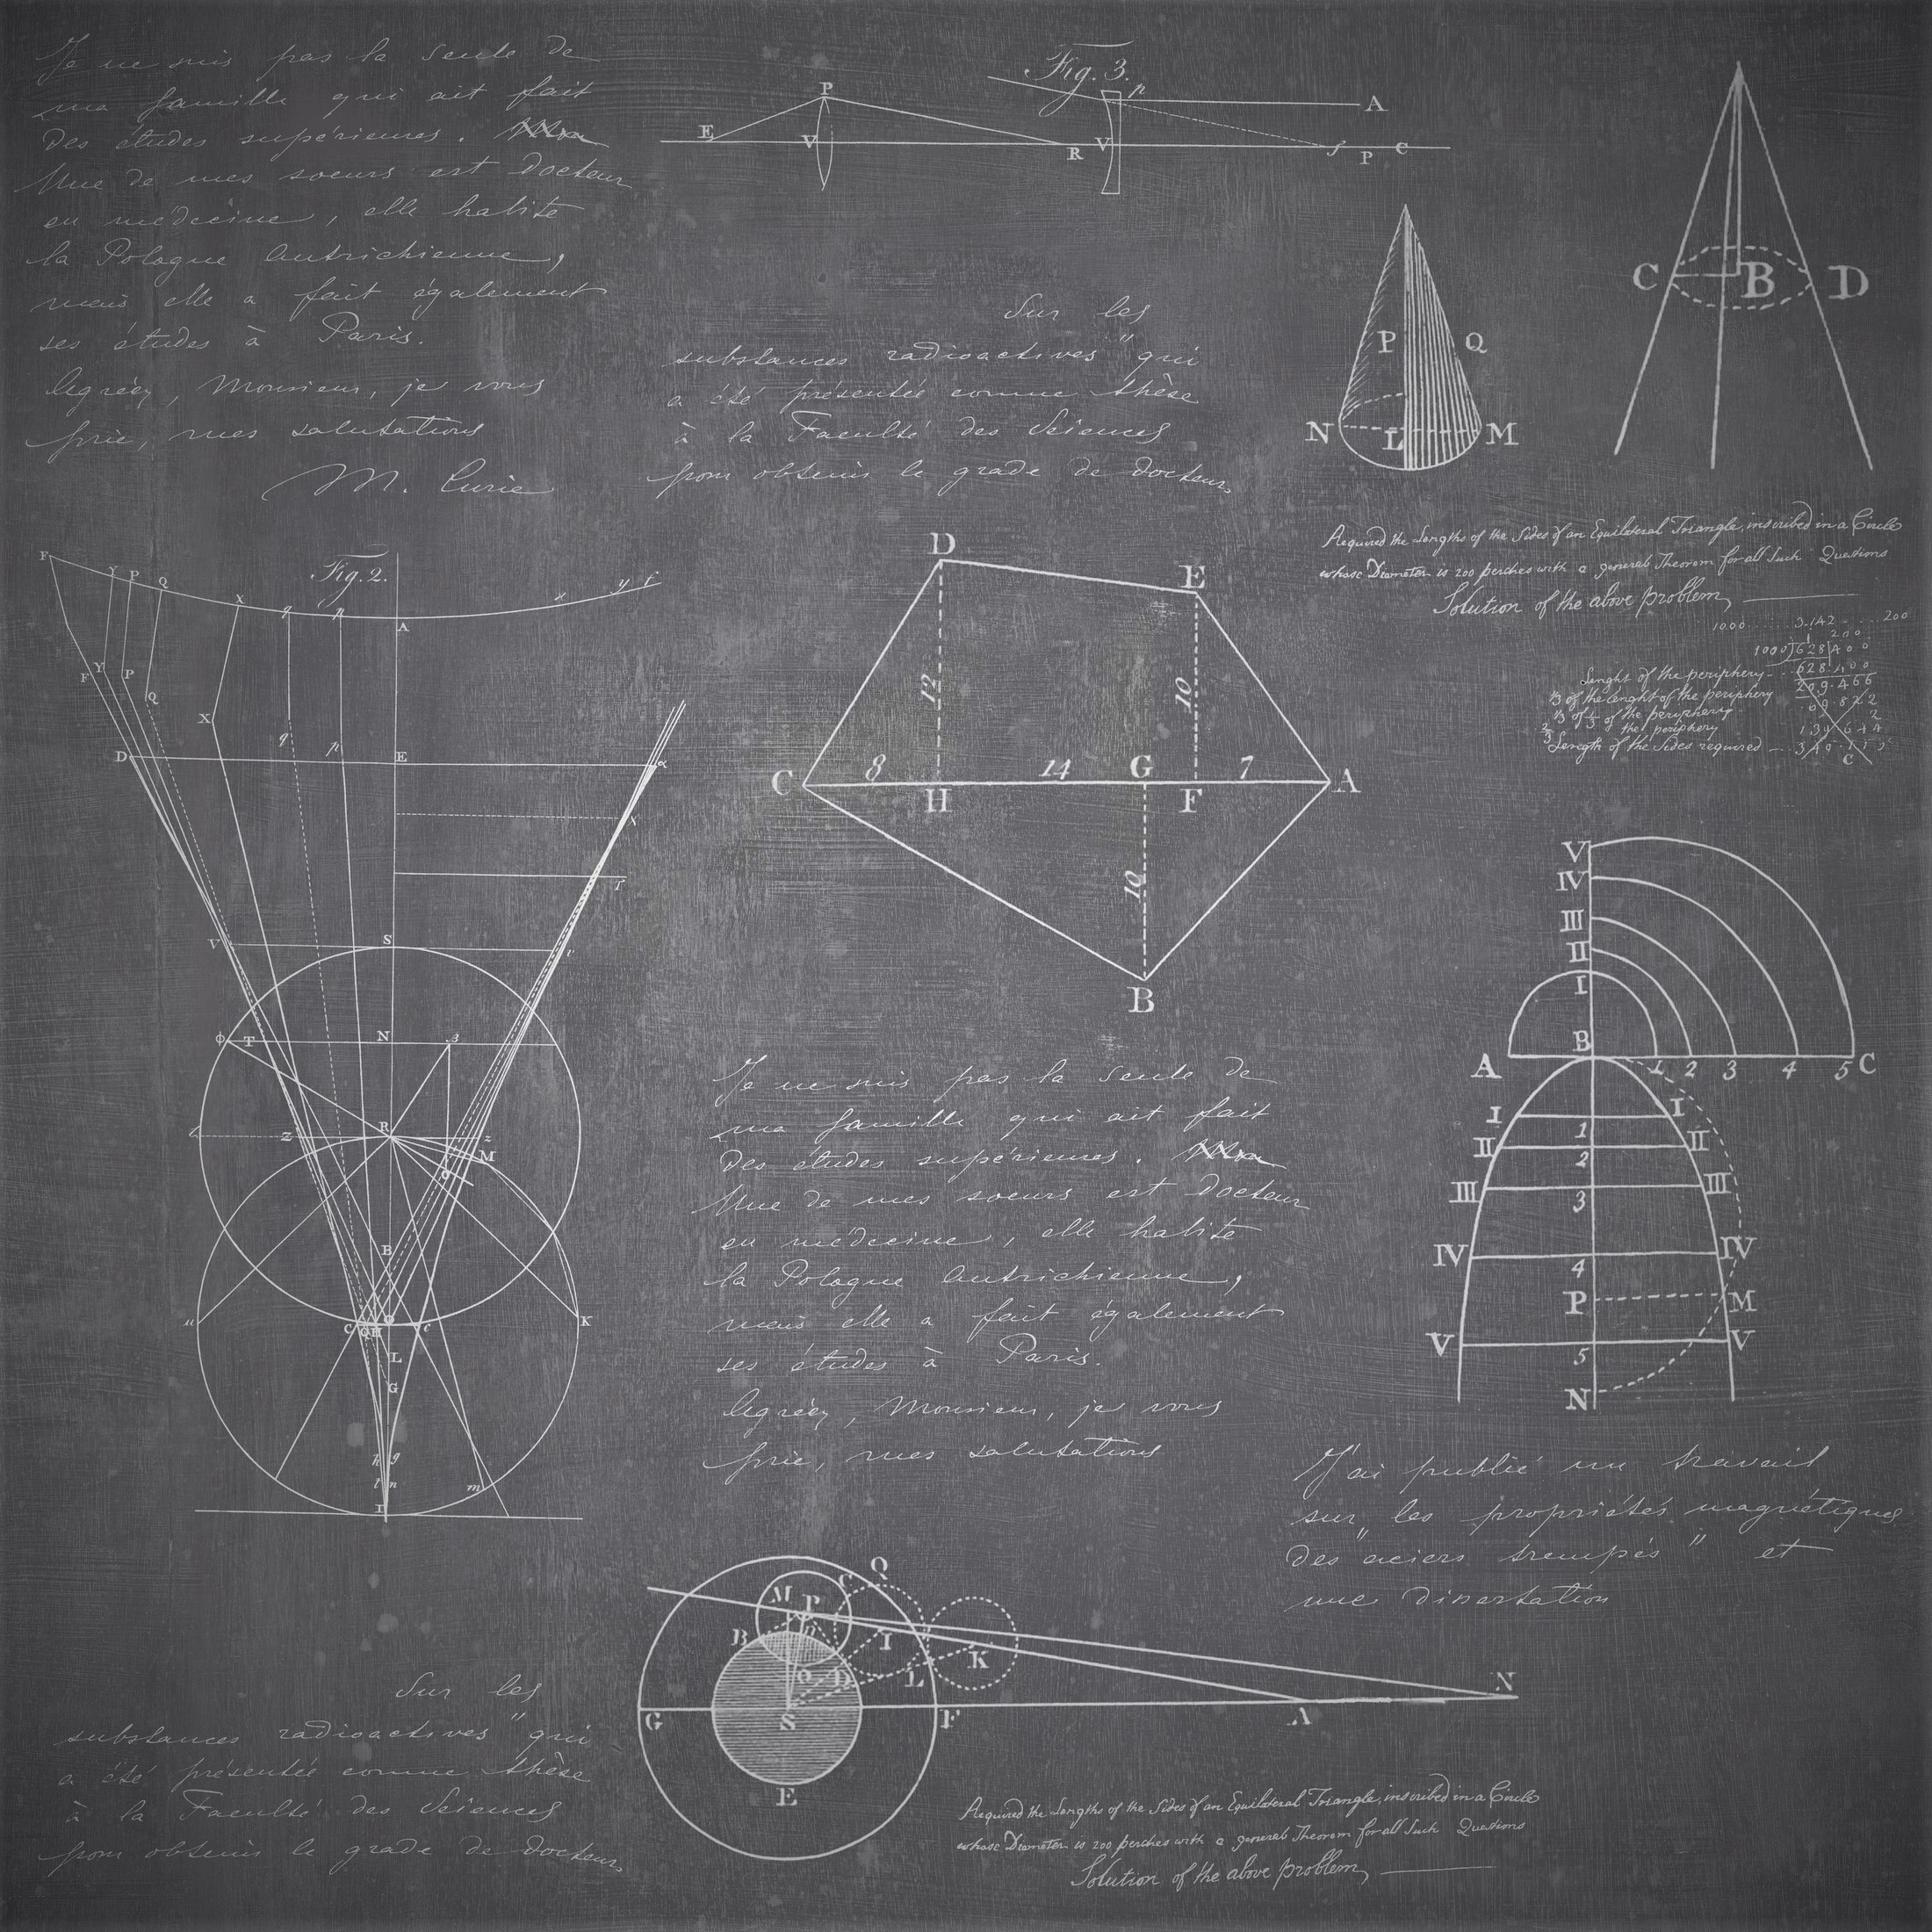 Je ne suis pas la seule de
ma famille qui ait fait
des études supérieures.
Une de mes soeurs est docteur
en médecine, elle habite
la Pologne Autrichienne,
mais elle a fait également
ses études à Paris.
Agréez, Monsieur, je vous
prie, mes salutations
M. Curie
Fig. 3.
P
p
A
E
V
R
V
f
P
C
Sur les
substances radioactives" qui
a été présentée comme thèse
à la Faculté des Sciences
pour obtenir le grade de docteur
P
Q
N
L
M
C
B
D
Required the Lengths of the Sides of an Equilateral Triangle, inscribed in a Circle
whose Diameter is 200 perches with a general Theorem for all Such Questions
Solution of the above problem
1000 3.142 200
200
1000 628400
628.400
Lenght of the periphery 209.466
1/3 of the lenght of the periphery
1/3 of 1/3 of the periphery
2/3 of the periphery
Length of the Sides required
C
Fig. 2.
F
Y
P
Q
X
q
p
A
x
y
f
Y
F
P
Q
X
q
p
D
E
α
X
r
V
S
v
φ
T
N
β
Z
R
z
M
B
μ
C
Q
H
O
c
K
L
G
h
g
l
n
m
I
D
E
12
10
8
14
G
7
C
H
F
A
10
B
V
IV
III
II
I
B
A
1
2
3
4
5
C
I
I
1
II
II
2
III
III
3
IV
IV
4
P
M
V
V
5
N
Je ne suis pas la seule de
ma famille qui ait fait
des études supérieures.
Une de mes soeurs est docteur
en médecine, elle habite
la Pologne Autrichienne,
mais elle a fait également
ses études à Paris.
Agréez, Monsieur, je vous
prie, mes salutations
J'ai publié un travail
sur les propriétés magnétiques
des "aciers trempés" et
une dissertation
Q
C
M
P
B
I
K
O
D
L
N
G
S
F
A
E
Sur les
substances radioactives" qui
a été présentée comme thèse
à la Faculté des Sciences
pour obtenir le grade de docteur
Required the Lengths of the Sides of an Equilateral Triangle, inscribed in a Circle
whose Diameter is 200 perches with a general Theorem for all Such Questions
Solution of the above problem